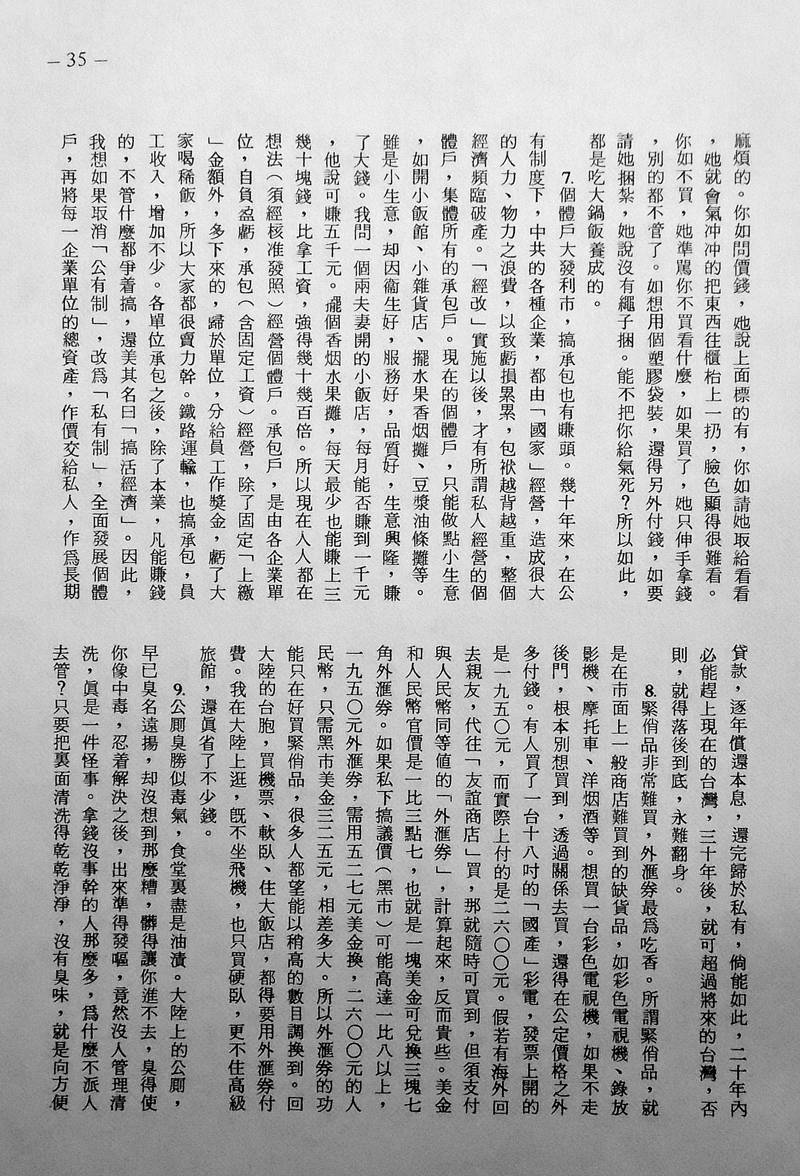 — 35 —
麻煩的。你如問價錢，她說上面標的有，你如請她取給看看
，她就會氣冲冲的把東西往櫃枱上一扔，臉色顯得很難看。
你如不買，她準駡你不買看什麼，如果買了，她只伸手拿錢
，別的都不管了。如想用個塑膠袋裝，還得另外付錢，如要
請她捆紮，她說沒有繩子捆。能不把你給氣死？所以如此，
都是吃大鍋飯養成的。
7.個體戶大發利市，搞承包也有賺頭。幾十年來，在公
有制度下，中共的各種企業，都由「國家」經營，造成很大
的人力、物力之浪費，以致虧損累累，包袱越背越重，整個
經濟頻臨破產。「經改」實施以後，才有所謂私人經營的個
體戶，集體所有的承包戶。現在的個體戶，只能做點小生意
，如開小飯館、小雜貨店、擺水果香烟攤、豆漿油條攤等。
雖是小生意，却因衞生好，服務好，品質好，生意興隆，賺
了大錢。我問一個兩夫妻開的小飯店，每月能否賺到一千元
，他說可賺五千元。擺個香烟水果攤，每天最少也能賺上三
幾十塊錢，比拿工資，強得幾十幾百倍。所以現在人人都在
想法（須經核准發照）經營個體戶。承包戶，是由各企業單
位，自負盈虧，承包（含固定工資）經營，除了固定「上繳
」金額外，多下來的，歸於單位，分給員工作獎金，虧了大
家喝稀飯，所以大家都很賣力幹。鐵路運輸，也搞承包，員
工收入，增加不少。各單位承包之後，除了本業，凡能賺錢
的，不管什麼都爭着搞，還美其名曰「搞活經濟」。因此，
我想如果取消「公有制」，改爲「私有制」，全面發展個體
戶，再將每一企業單位的總資產，作價交給私人，作爲長期
貸款，逐年償還本息，還完歸於私有，倘能如此，二十年內
必能趕上現在的台灣，三十年後，就可超過將來的台灣，否
則，就得落後到底，永難翻身。
8.緊俏品非常難買，外滙券最爲吃香。所謂緊俏品，就
是在市面上一般商店難買到的缺貨品，如彩色電視機、錄放
影機、摩托車、洋烟酒等。想買一台彩色電視機，如果不走
後門，根本別想買到，透過關係去買，還得在公定價格之外
多付錢。有人買了一台十八吋的「國產」彩電，發票上開的
是一九五〇元，而實際上付的是二六〇〇元。假若有海外回
去親友，代往「友誼商店」買，那就隨時可買到，但須支付
與人民幣同等値的「外滙券」，計算起來，反而貴些。美金
和人民幣官價是一比三點七，也就是一塊美金可兌換三塊七
角外滙券。如果私下搞議價（黑市）可能高達一比八以上，
一九五〇元外滙券，需用五二七元美金換，二六〇〇元的人
民幣，只需黑市美金三二五元，相差多大。所以外滙券的功
能只在好買緊俏品，很多人都望能以稍高的數目調換到。回
大陸的台胞，買機票、軟臥、住大飯店，都得要用外滙券付
費。我在大陸上逛，旣不坐飛機，也只買硬臥，更不住高級
旅館，還眞省了不少錢。
9.公厠臭勝似毒氣，食堂裏盡是油漬。大陸上的公厠，
早已臭名遠揚，却沒想到那麼糟，髒得讓你進不去，臭得使
你像中毒，忍着解決之後，出來準得發嘔，竟然沒人管理清
洗，眞是一件怪事。拿錢沒事幹的人那麼多，爲什麼不派人
去管？只要把裏面清洗得乾乾淨淨，沒有臭味，就是向方便